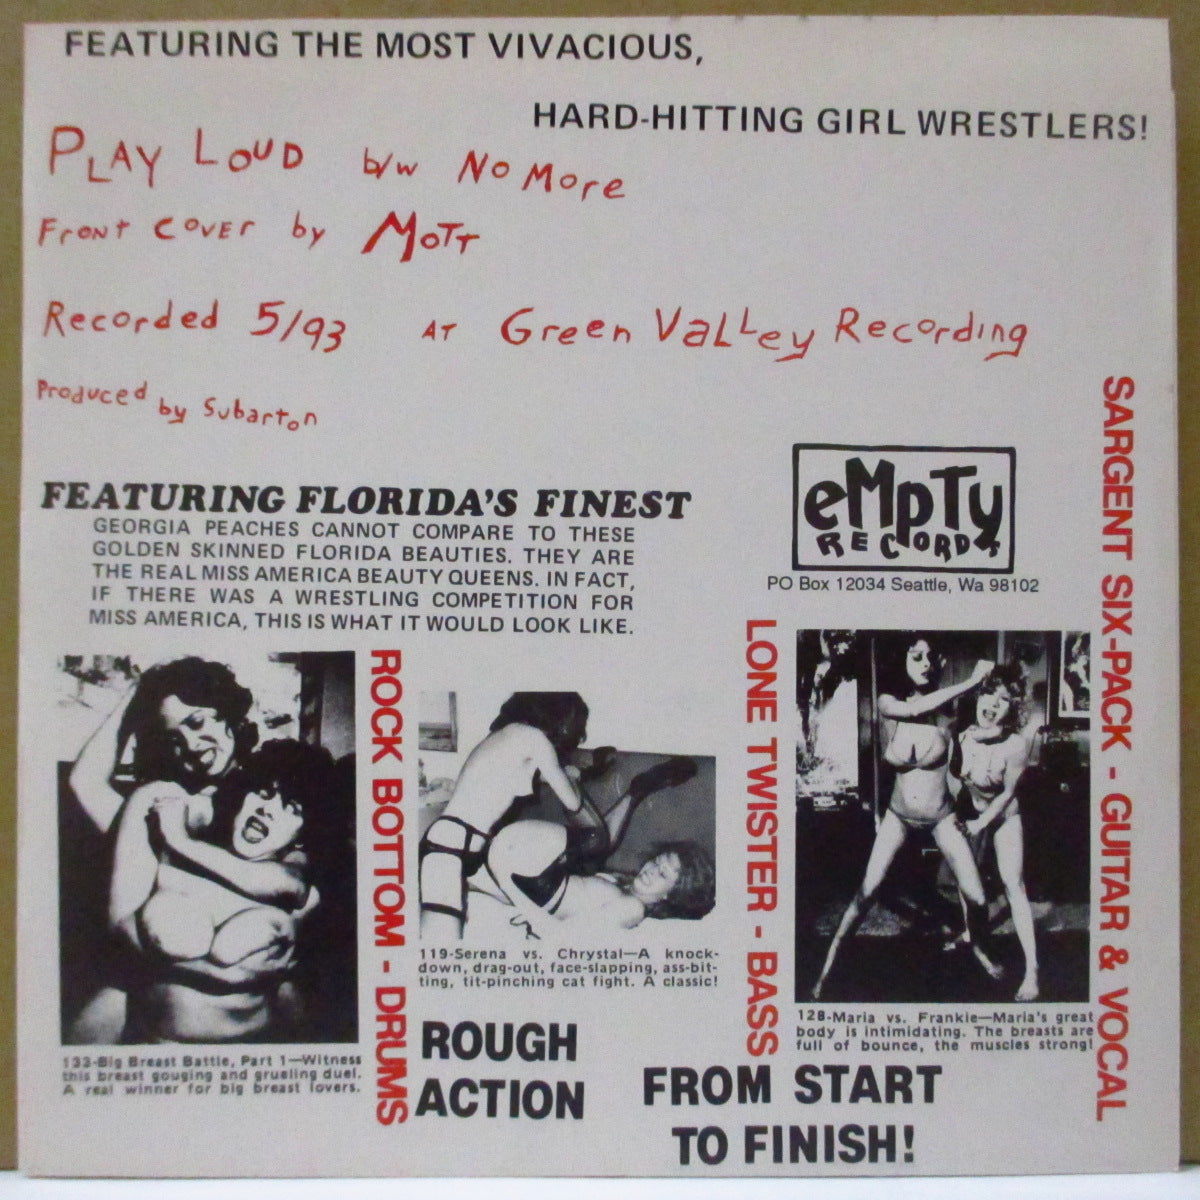 FEATURING THE MOST VIVACIOUS,
HARD-HITTING GIRL WRESTLERS!
PLAY LOUD b/w No More
Front cover by Mott
Recorded 5/93 AT Green Valley Recording
Produced by Subarton
FEATURING FLORIDA'S FINEST
GEORGIA PEACHES CANNOT COMPARE TO THESE
GOLDEN SKINNED FLORIDA BEAUTIES. THEY ARE
THE REAL MISS AMERICA BEAUTY QUEENS. IN FACT,
IF THERE WAS A WRESTLING COMPETITION FOR
MISS AMERICA, THIS IS WHAT IT WOULD LOOK LIKE.
eMpTy
RECORDS
PO Box 12034 Seattle, Wa 98102
SARGENT SIX-PACK - GUITAR & VOCAL
ROCK BOTTOM - DRUMS
LONE TWISTER - BASS
133-Big Breast Battle, Part 1—Witness
this breast gouging and grueling duel.
A real winner for big breast lovers.
119-Serena vs. Chrystal—A knock-
down, drag-out, face-slapping, ass-bit-
ting, tit-pinching cat fight. A classic!
128-Maria vs. Frankie—Maria's great
body is intimidating. The breasts are
full of bounce, the muscles strong!
ROUGH
ACTION
FROM START
TO FINISH!